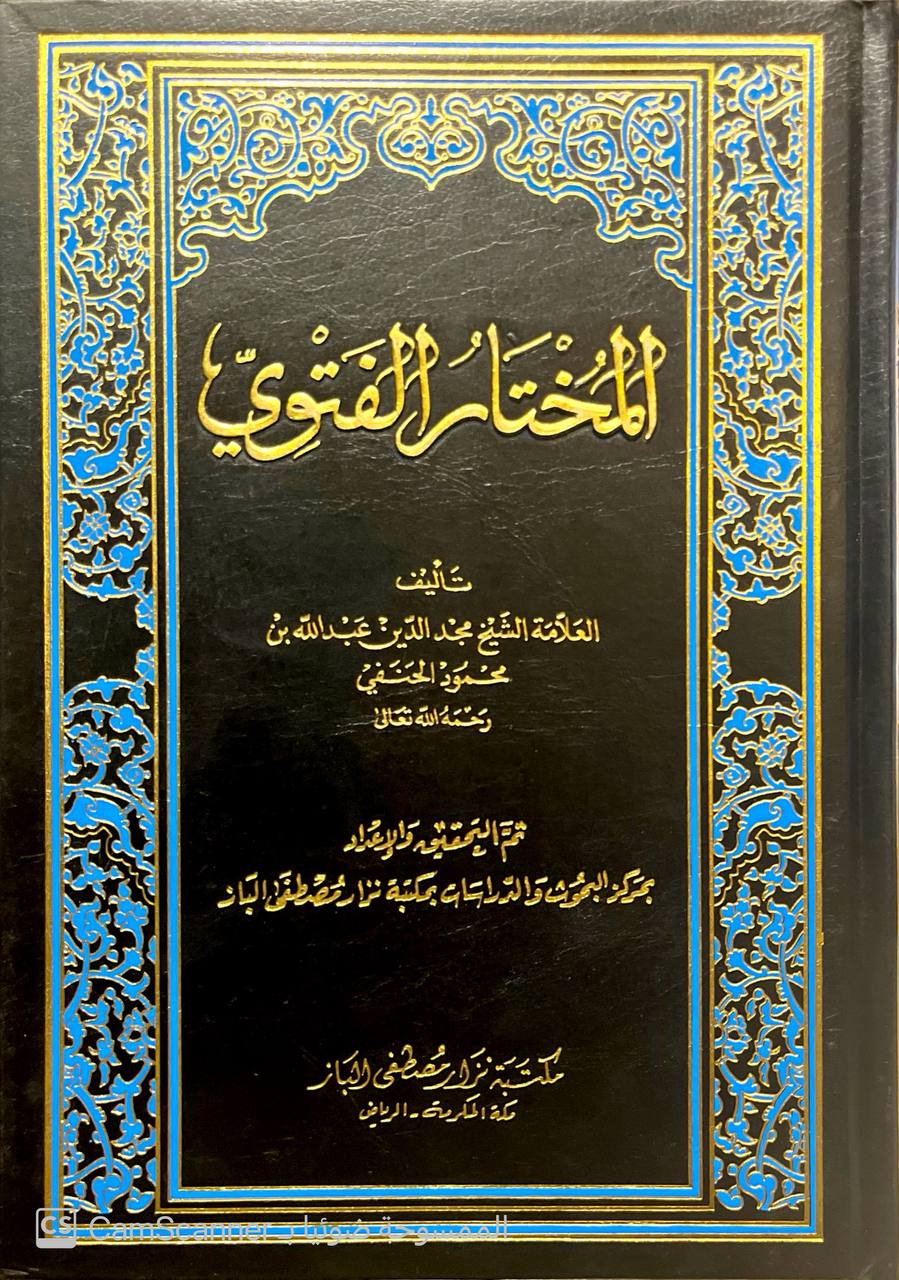 المُخْتَارُ الفَتْوِيّ
تأليف
العَلاَّمَة الشَّيْخ مجد الدِّين عَبْدالله بن
محْمُود الحَنَفيْ
رَحْمَهُ الله تعَالىٰ
تمَّ التحقيق وَالإعْداد
بمركز البحوث وَالدِّراسات بمكتبة نزار مُصْطفىٰ الباز
مكتَبَة نزَار مُصْطفى البَاز
مكة المكرمة - الرياض
الممسوحة ضوئيا بـ CamScanner
CS